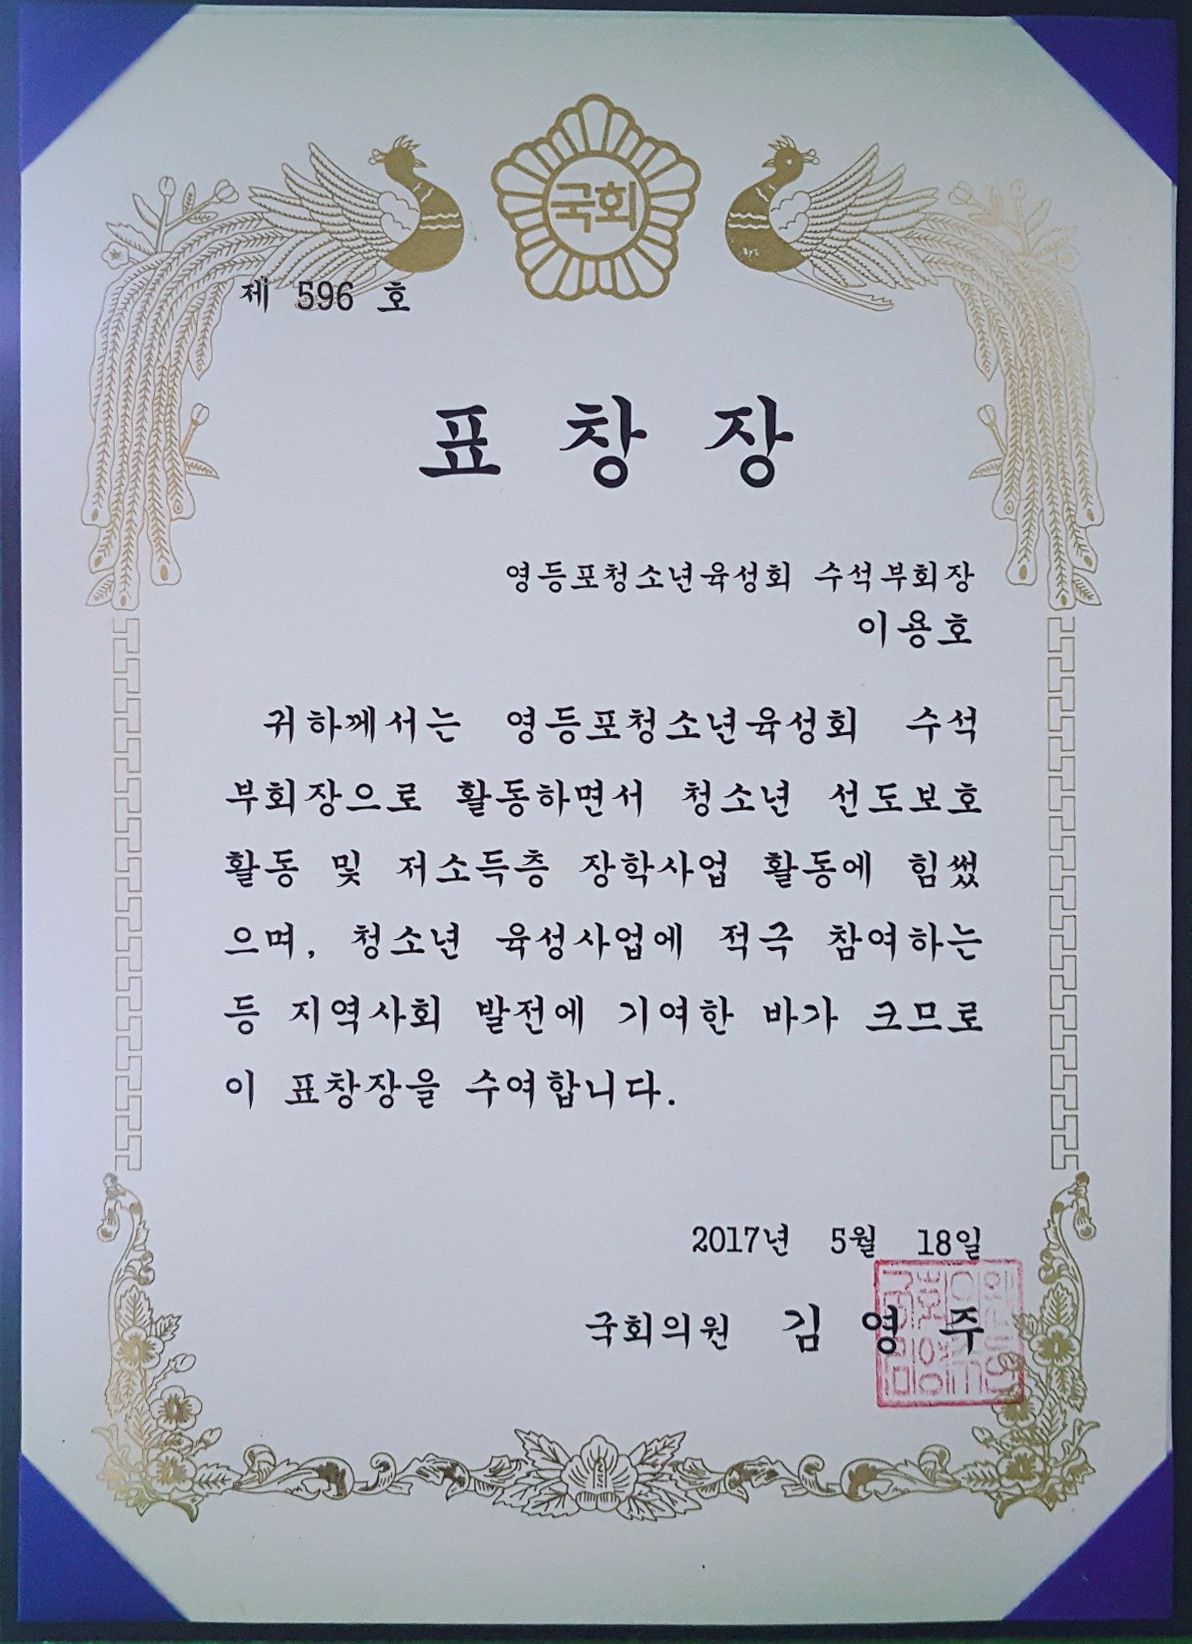 국회
제 596 호
표 창 장
영등포청소년육성회 수석부회장
이용호
귀하께서는 영등포청소년육성회 수석
부회장으로 활동하면서 청소년 선도보호
활동 및 저소득층 장학사업 활동에 힘썼
으며, 청소년 육성사업에 적극 참여하는
등 지역사회 발전에 기여한 바가 크므로
이 표창장을 수여합니다.
2017년 5월 18일
국회의원 김 영 주